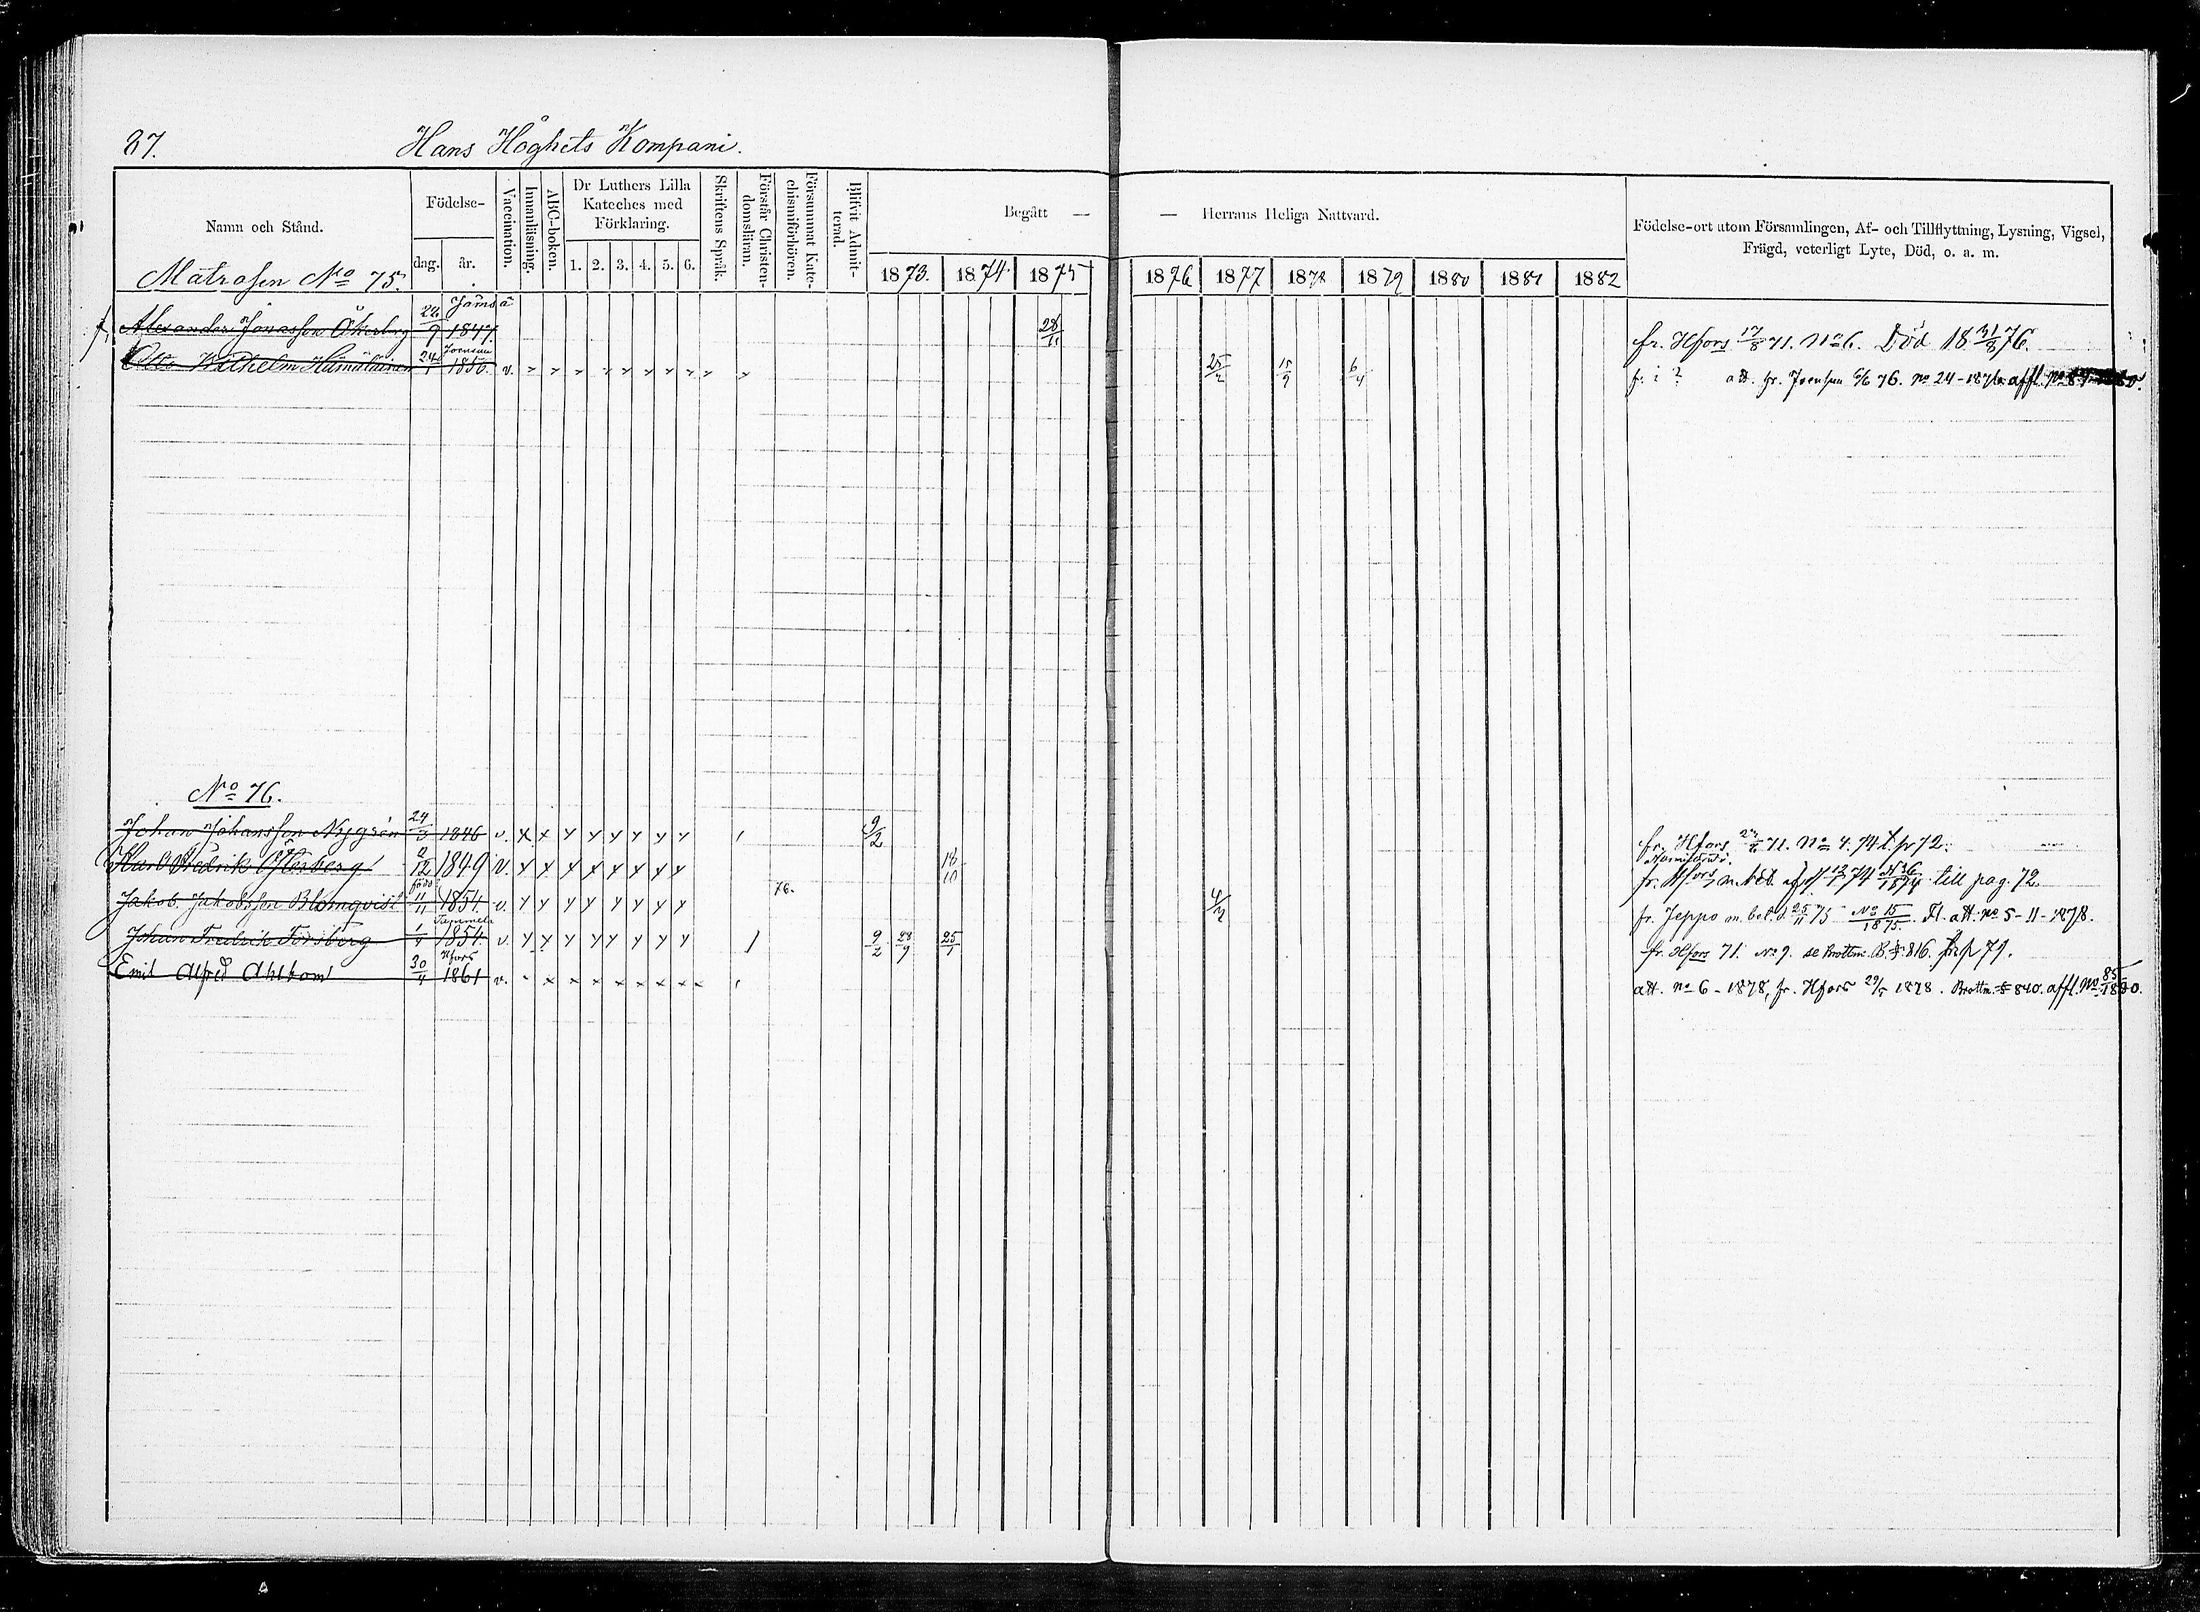 87.
Hans Höghets Kompani.
Namn och Stånd.
Födelse-
dag.
år.
Vaccination.
Innanläsning.
ABC-boken.
Dr Luthers Lilla
Kateches med
Förklaring.
1. 2. 3. 4. 5. 6.
Skriftens Språk.
Förstår Christen-
domsläran.
Försummat Kate-
chismiförhören.
Blifvit Admit-
terad.
Begått — — Herrans Heliga Nattvard.
1873. 1874. 1875 1876 1877 1878 1879 1880 1881 1882
Födelse-ort utom Församlingen, Af- och Tillflyttning, Lysning, Vigsel,
Frägd, veterligt Lyte, Död, o. a. m.
Matrosen No 75.
Jämsä
Alexander Jonasson Åkerberg 22/9 1847. 28/11 fr. Hfors 17/8 71. No 6. Död 18 31/8 76.
Joensuu
Otto Wilhelm Hämäläinen 24/1 1850. v. 25/2 15/9 6/4 fr. i ? att. fr. Joensuu 6/6 76. no 24-1876 affl.
No 76.
Johan Johansson Nygrén 24/3 1846 v. x x y y y y y y 9/2 fr. Hfors 71. No 4. 74 72.
Karl Fredrik Österberg 2/12 1849 v. y y y y y y y y 18/10 fr. Hfors m. bet. 74 No 36/1874 till pag. 72.
Jakob Jakobsson Blomqvist 11/11 1854 v. y y y y y y y y 76. 4/2 fr. Jeppo m. bet. d. 25/11 75 No 15/1875. Fl. att. no 5-11-1878.
Johan Fredrik Forsberg 1854 v. y y y y y y y y 9/2 28/9 25/1 fr. Hfors 71. No 9. se Brottm. B. § 816. 79.
Hfors
Emil Alfred Ahlbom 30/4 1861 v. att. no 6-1878, fr. Hfors 29/5 1878. Brottm. § 840. affl. No 85/1880.